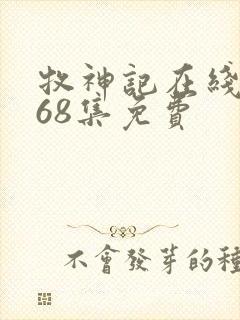 牧神記在綫
68集免費
不會發芽的種